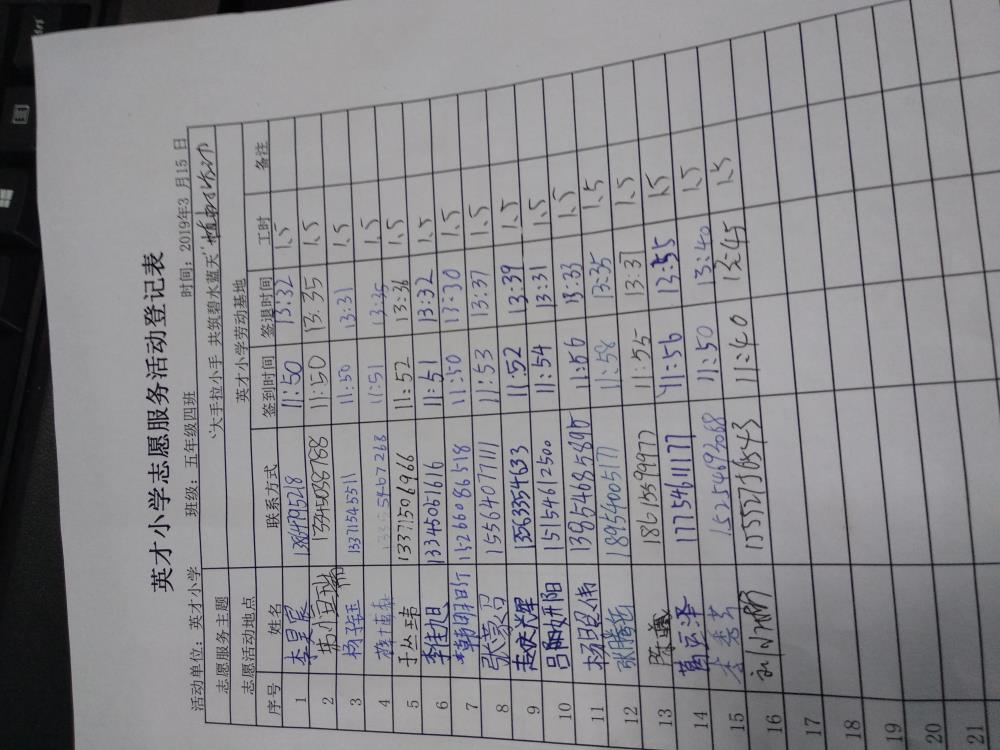 英才小学志愿服务活动登记表
活动单位：英才小学 班级：五年级四班 时间：2019年3月15日
志愿服务主题 “大手拉小手 共筑碧水蓝天”植树活动
志愿活动地点 英才小学劳动基地
序号 姓名 联系方式 签到时间 签退时间 工时 备注
1 李昊宸 11:50 13:32 1.5
2 11:50 13:35 1.5
3 杨子钰 13371545511 11:50 13:31 1.5
4 11:51 13:35 1.5
5 于丛纬 13371506966 11:52 13:36 1.5
6 李佳旭 13345061616 11:51 13:32 1.5
7 韩明汀 15266086518 11:50 13:30 1.5
8 张蒙习 15564077111 11:53 13:37 1.5
9 赵庆辉 13563354633 11:52 13:39 1.5
10 吕妍阳 15154612500 11:54 13:31 1.5
11 杨旦伟 13954685895 11:56 13:33 1.5
12 张腾岳 18954600517 11:58 13:35 1.5
13 陈曦 18615599977 11:55 13:31 1.5
14 葛云泽 17754611177 11:56 13:55 1.5
15 李秀芳 15254693068 11:50 13:40 1.5
16 15552165543 11:40 13:45 1.5
17
18
19
20
21